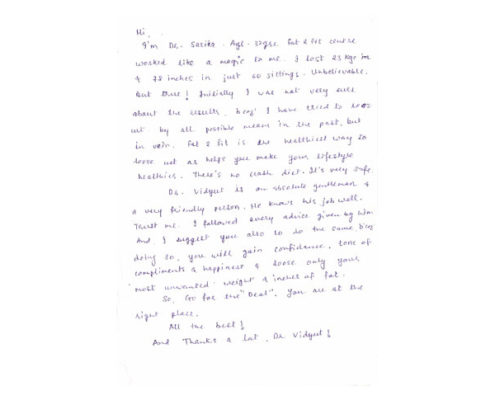 Hi,
I'm Dr. Sarika. Age. 32yrs. Fat 2 Fit centre
worked like a magic to me. I lost 23 kgs in
& 78 inches in just 60 sittings. Unbelievable.
But true! Initially I was not very sure
about the results, bcoz I have tried to
wt by all possible means in the past, but
in vain. Fat 2 Fit is the healthiest way to
loose wt as helps you make your lifestyle
healthier. There's no crash diet. It's very safe.
Dr. Vidyut is an absolute gentleman &
a very friendly person. He knows his job well.
Trust me. I followed every advice given by him.
And, I suggest you also to do the same bcoz
doing so, you will gain confidence, tons of
compliments & happiness & loose only your
most unwanted weight & inches of fat.
So, Go for the "Deal". You are at the
right place.
All the best!
And Thanks a lot, Dr Vidyut!